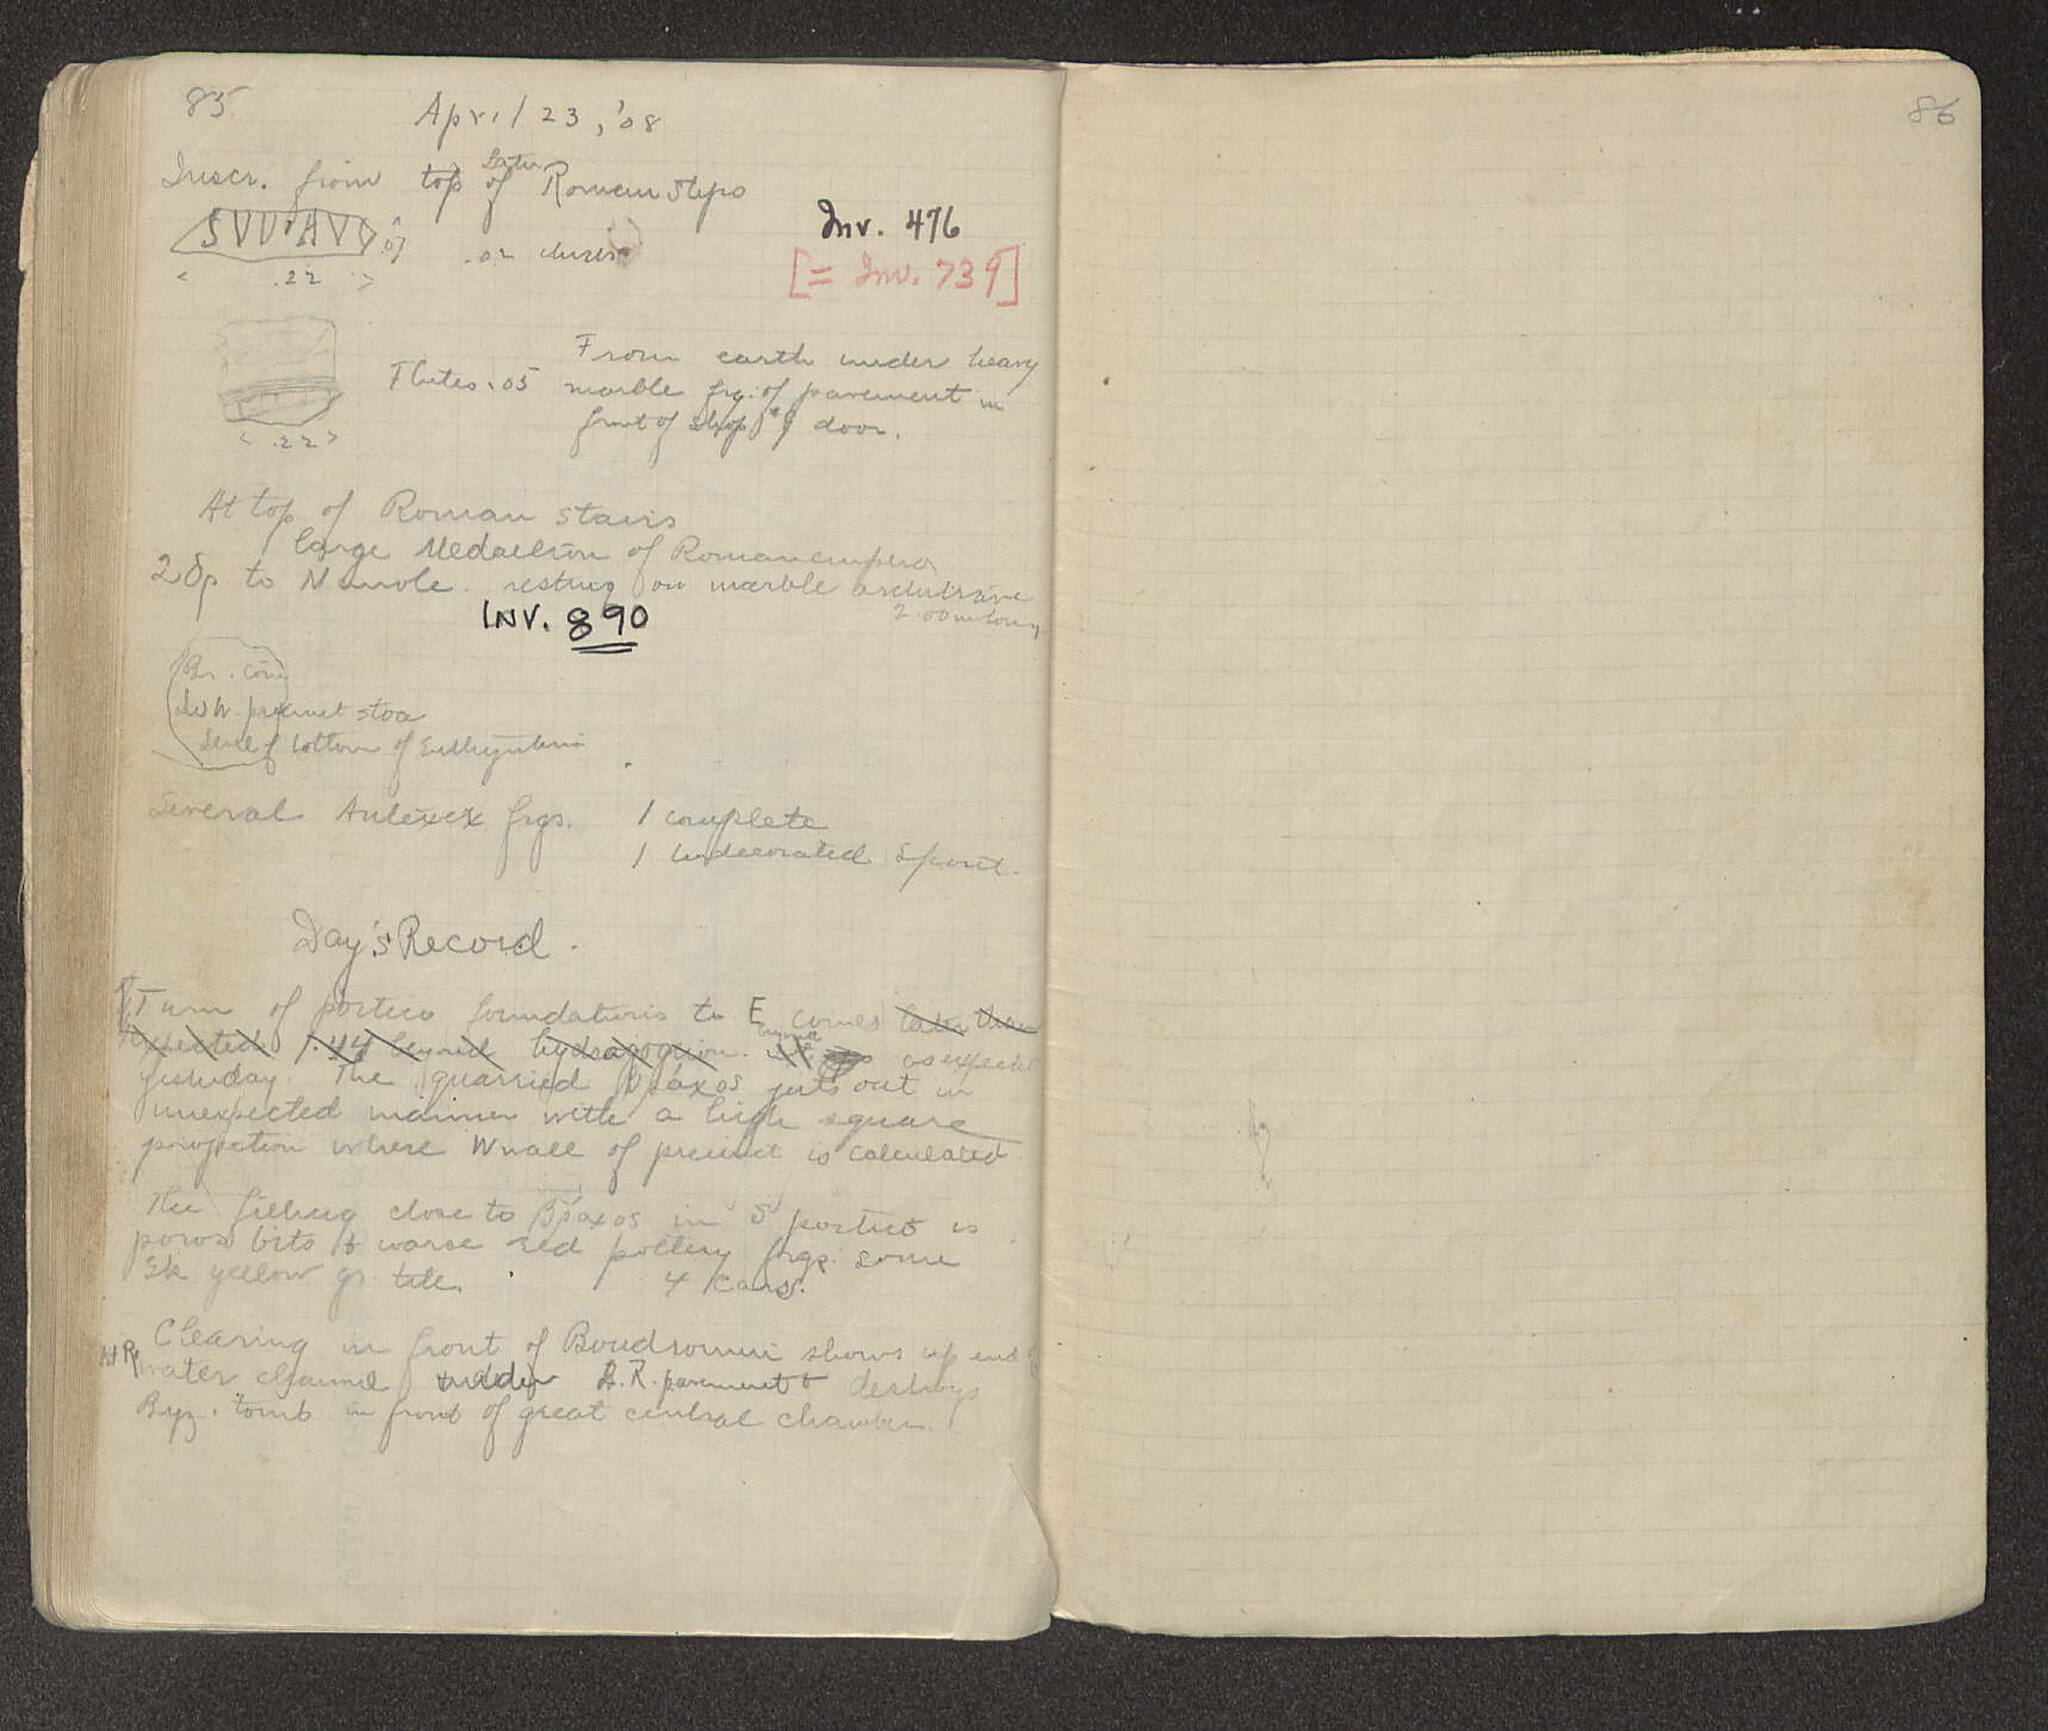 85
April 23, '08
Later
Inscr. from top of Roman Steps
Inv. 476
.07
.02
[= Inv. 739]
.22
From earth under heavy
.05 marble frg. of pavement in
front of shop door.
.22
At top of Roman stairs
large Medallion of Roman emperor
to N resting on marble architrave
2.00 m long
INV. 890
Br. coin
pavement stoa
bottom of Euthynteria
Several frgs. 1 complete
1 undecorated spout.
Day's Record.
Turn of portico foundations to E comes later than
expected 1.44 beyond hydragogion. as expected
yesterday. The quarried βράχος juts out in
unexpected manner with a high square
projection where W wall of precinct is calculated
The filling close to βράχος in S portico is
poros bits & coarse red pottery frgs. some
yellow tile. 4 cars.
Clearing in front of shows up end of
water channel under R. pavement & destroys
Byz. tomb in front of great central chamber.
86